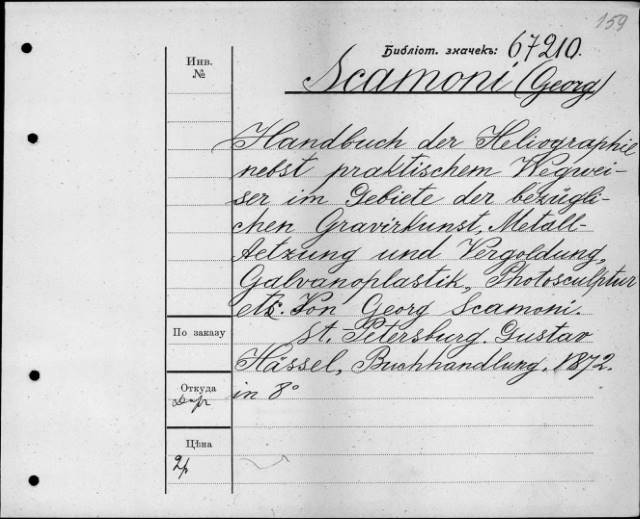 159
Библіот. значекъ: 67210.
Инв.
№
Scamoni (Georg)
Handbuch der Heliographie
nebst praktischem Wegwei-
ser im Gebiete der bezügli-
chen Gravirkunst, Metall-
Aetzung und Vergoldung,
Galvanoplastik, Photosculptur
etc. Von Georg Scamoni.
St. Petersburg. Gustav
Hässel, Buchhandlung. 1872.
in 8°
По заказу
Откуда
Цѣна
2р